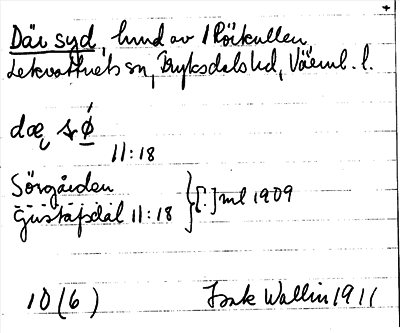 Där syd, hund av /Rörkullen,
Lekvattnets sn, Fryksdals hd, Värml. l.
11:18
Sörgården
Gustafsdal 11:18 } [:] ml 1909
10 (6) Isak Wallin 1911